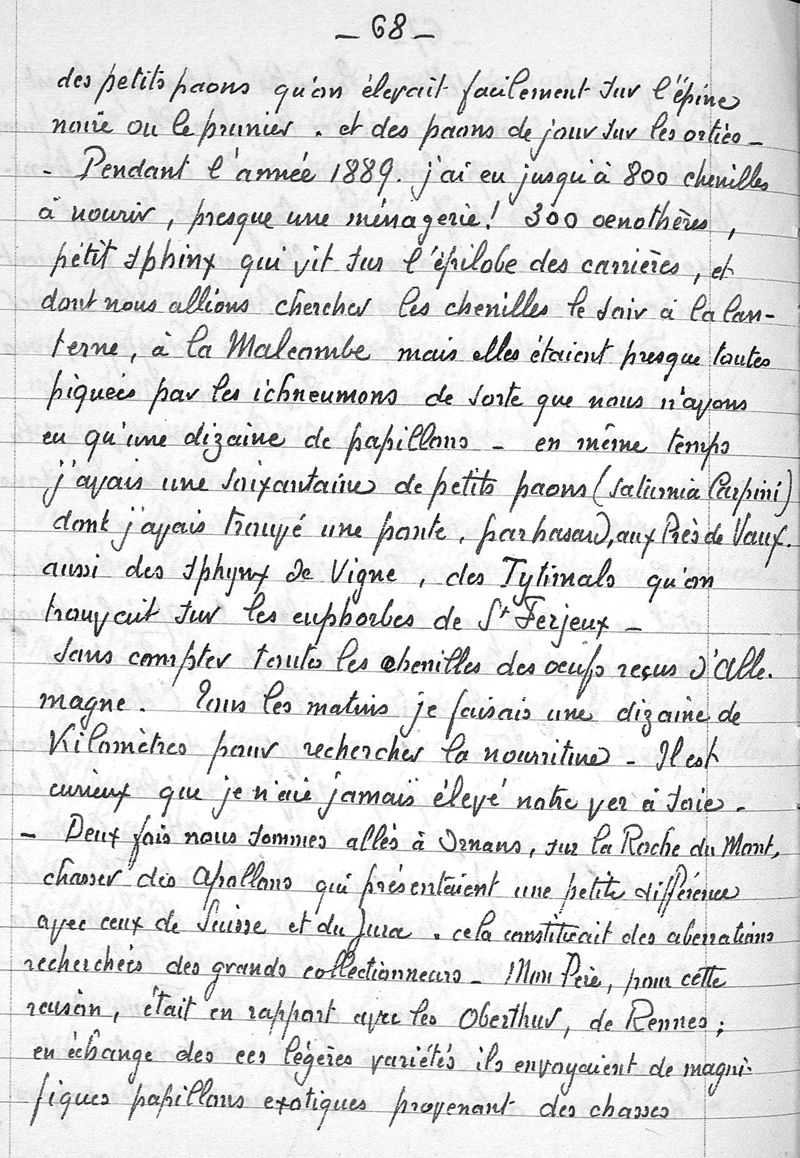 _ 68 _
des petits paons qu'on élevait facilement sur l'épine
noire ou le prunier. et des paons de jour sur les orties _
- Pendant l'année 1889. j'ai eu jusqu'à 800 chenilles
à nourir, presque une ménagerie! 300 oenothères,
petit sphinx qui vit sur l'épilobe des carrières, et
dont nous allions chercher les chenilles le soir à la lan-
terne, à la Malcombe mais elles étaient presque toutes
piquées par les ichneumons de sorte que nous n'avons
eu qu'une dizaine de papillons _ en même temps
j'avais une soixantaine de petits paons (saturnia Carpini)
dont j'avais trouvé une ponte, par hasard, aux Près de Vaux.
aussi des sphynx de Vigne, des Tytimals qu'on
trouvait sur les euphorbes de St Ferjeux _
sans compter toutes les chenilles des oeufs reçus d'Alle.
magne. Tous les matins je faisais une dizaine de
Kilomètres pour rechercher la nourriture _ Il est
curieux que je n'aie jamais élevé notre ver à soie _
_ Deux fois nous sommes allés à Ornans, sur la Roche du Mont,
chasser des Apollons qui présentaient une petite différence
avec ceux de Suisse et du Jura. cela constituait des aberrations
recherchées des grands collectionneurs _ Mon Père, pour cette
raison, était en rapport avec les Oberthur, de Rennes;
en échange des ces légères variétés ils envoyaient de magni-
fiques papillons exotiques provenant des chasses